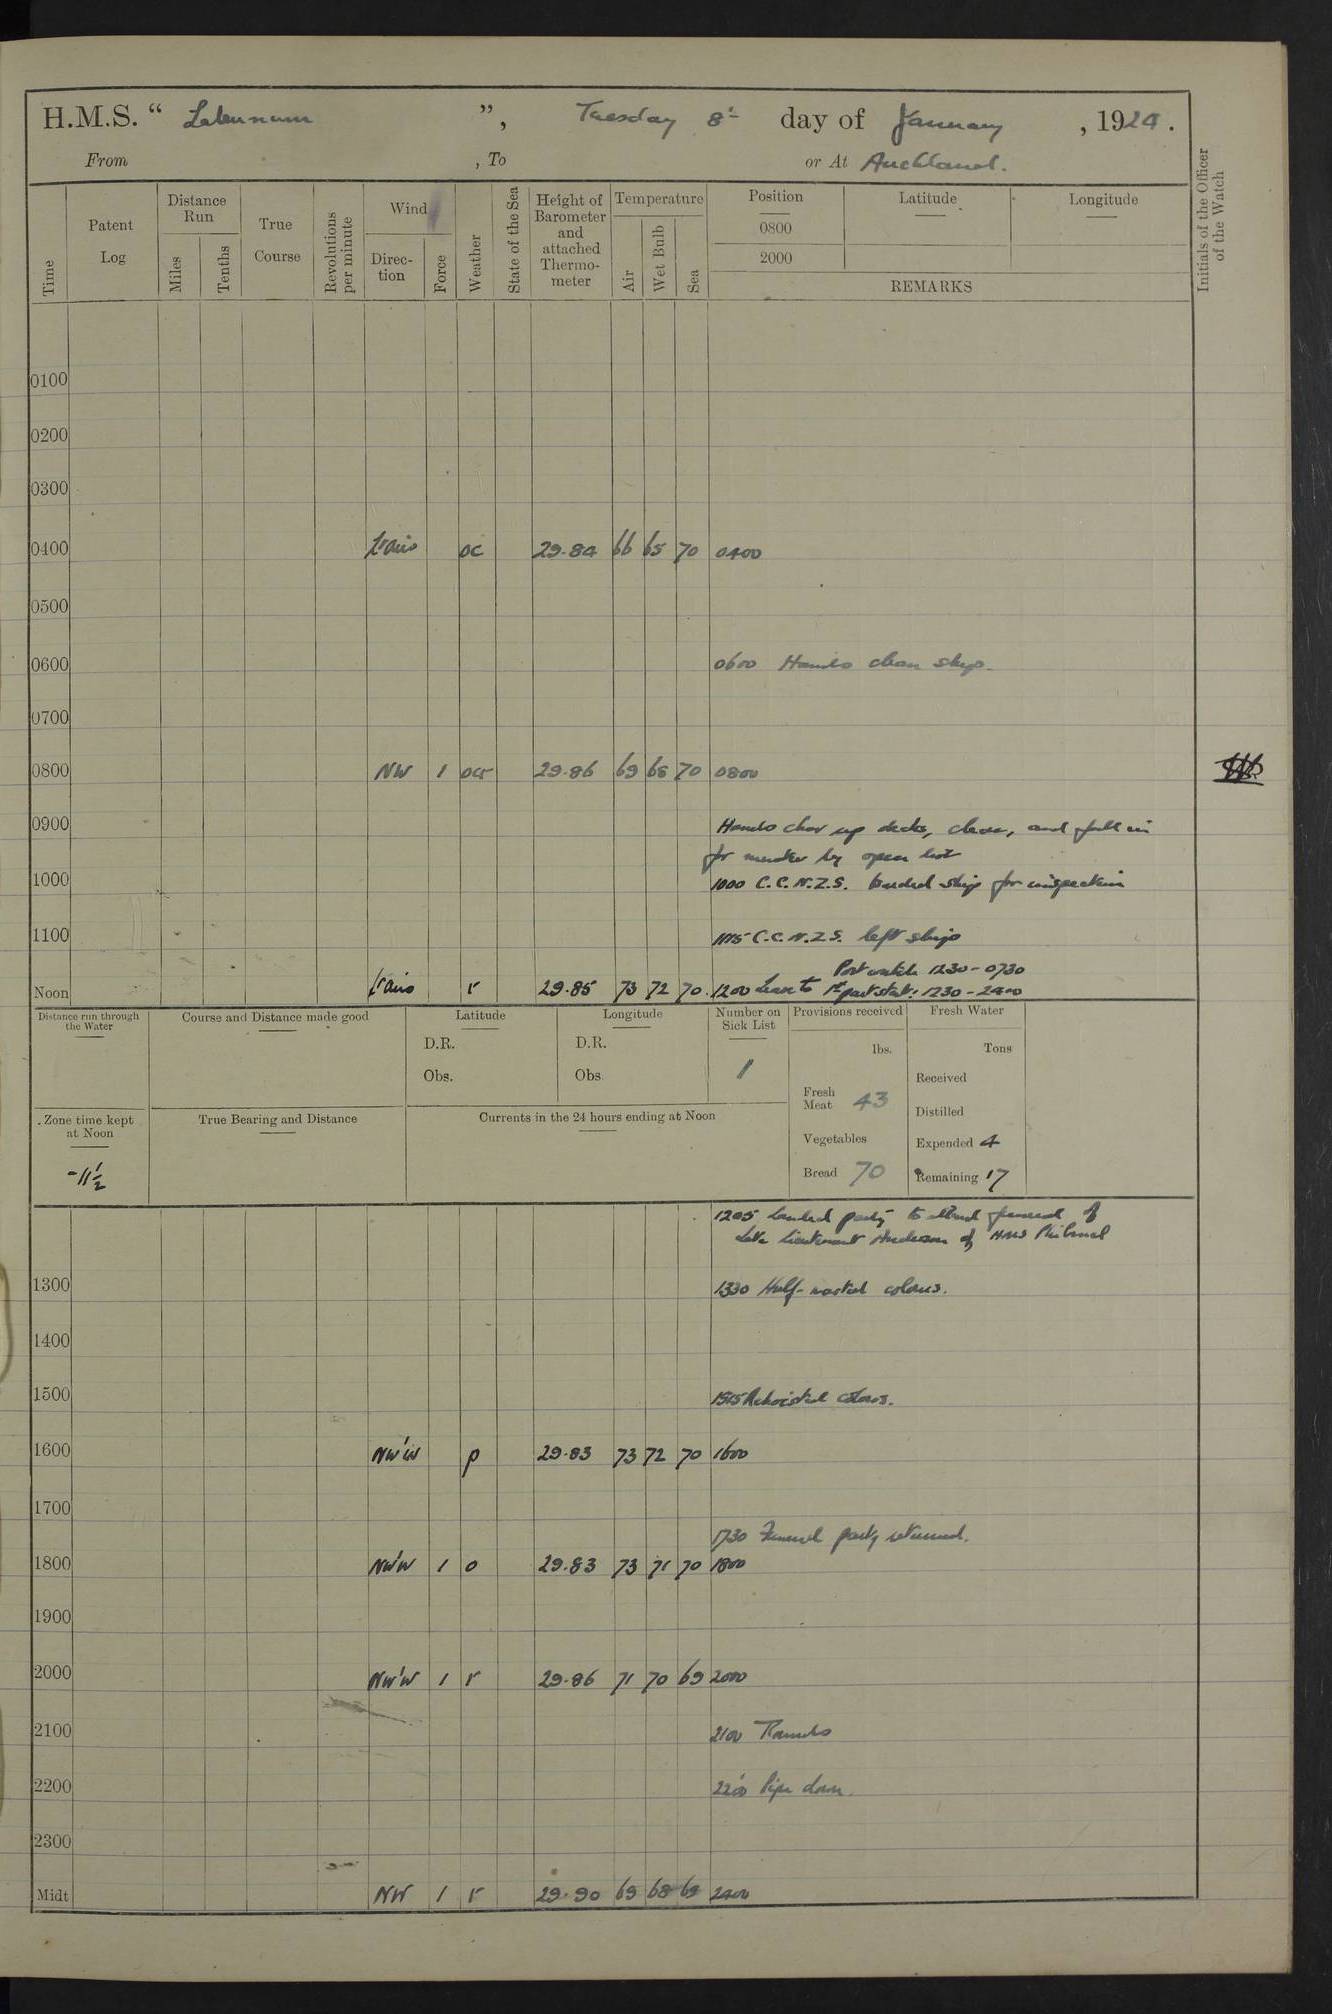 H.M.S. " Laburnum ", Tuesday 8th day of January, 1924.
From , To or At Auckland.
Time
Patent Log
Distance Run
Miles
Tenths
True Course
Revolutions per minute
Wind
Direc-tion
Force
Weather
State of the Sea
Height of Barometer and attached Thermo-meter
Temperature
Air
Wet Bulb
Sea
Position
0800
2000
Latitude
Longitude
REMARKS
Initials of the Officer of the Watch
0100
0200
0300
0400 Lt airs oc 29.84 66 65 70 0400
0500
0600 0600 Hands clean ship.
0700
0800 NW 1 ocr 29.86 69 68 70 0800
0900 Hands clear up decks, clean, and fall in
for muster by open list
1000 1000 C.C.N.Z.S. boarded ship for inspection
1100 1115 C.C.N.Z.S. left ship
Port watch 1230-0730
Noon Lt airs r 29.85 73 72 70 1200 Leave to 1st part stab: 1230-2400
Distance run through the Water
Course and Distance made good
Latitude
D.R.
Obs.
Longitude
D.R.
Obs.
Number on Sick List
1
Provisions received
lbs.
Fresh Meat 43
Vegetables
Bread 70
Fresh Water
Tons
Received
Distilled
Expended 4
Remaining 17
Zone time kept at Noon
-11 1/2
True Bearing and Distance
Currents in the 24 hours ending at Noon
1205 Landed party to attend funeral of
Late Lieutenant Anderson of HMS Philomel
1300 1330 Half-masted colours.
1400
1500 1515 Rehoisted colours.
1600 NW'W p 29.83 73 72 70 1600
1700
1730 Funeral party returned.
1800 NW'W 1 o 29.83 73 71 70 1800
1900
2000 NW'W 1 r 29.86 71 70 69 2000
2100 2100 Rounds
2200 2200 Pipe down.
2300
Midt NW 1 r 29.90 69 68 69 2400